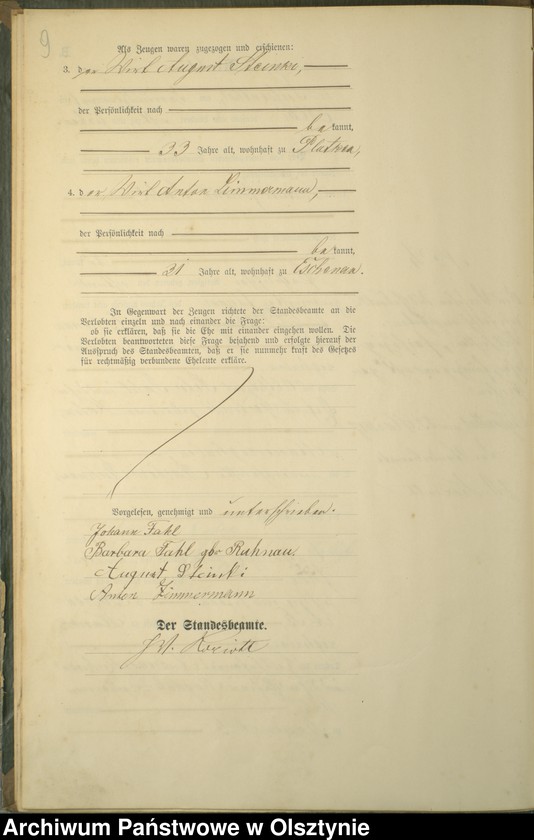 9
Als Zeugen waren zugezogen und erschienen:
3. der Wirt August Steinki,
der Persönlichkeit nach
bekannt,
33 Jahre alt, wohnhaft zu
4. der Wirt Anton Zimmermann,
der Persönlichkeit nach
bekannt,
31 Jahre alt, wohnhaft zu Eschenau.
In Gegenwart der Zeugen richtete der Standesbeamte an die
Verlobten einzeln und nach einander die Frage:
ob sie erklären, daß sie die Ehe mit einander eingehen wollen. Die
Verlobten beantworteten diese Frage bejahend und erfolgte hierauf der
Ausspruch des Standesbeamten, daß er sie nunmehr kraft des Gesetzes
für rechtmäßig verbundene Eheleute erkläre.
Vorgelesen, genehmigt und unterschrieben.
Johann Fahl
Barbara Fahl gbr Ruhnau
August Steinki
Anton Zimmermann
Der Standesbeamte.
Archiwum Państwowe w Olsztynie